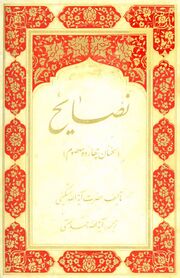 نصایح
(سخنان چهارده معصوم)
تألیف حضرت آیة الله مشکینی
ترجمه آیة الله جنتی